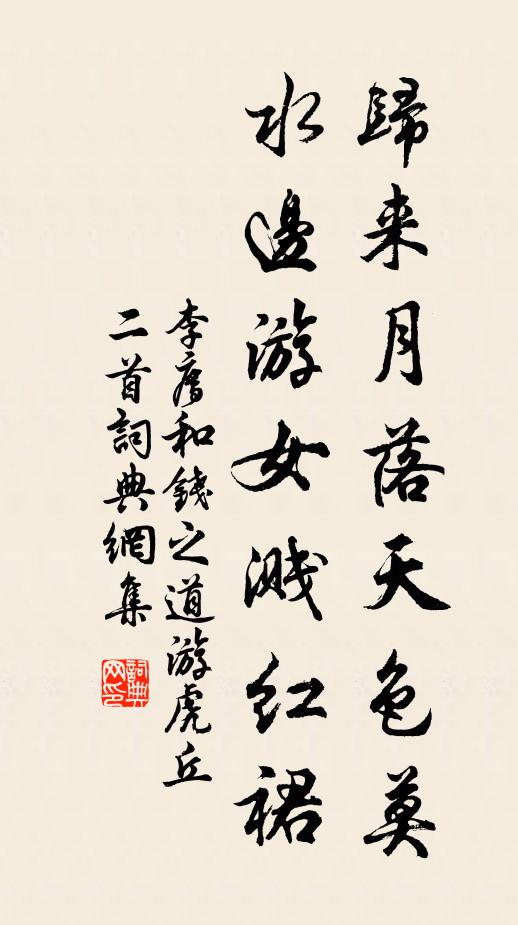 歸来月落天色莫
水邊游女濺紅裙
李和錢之道游虎丘
二首詞典網集
詞典网印